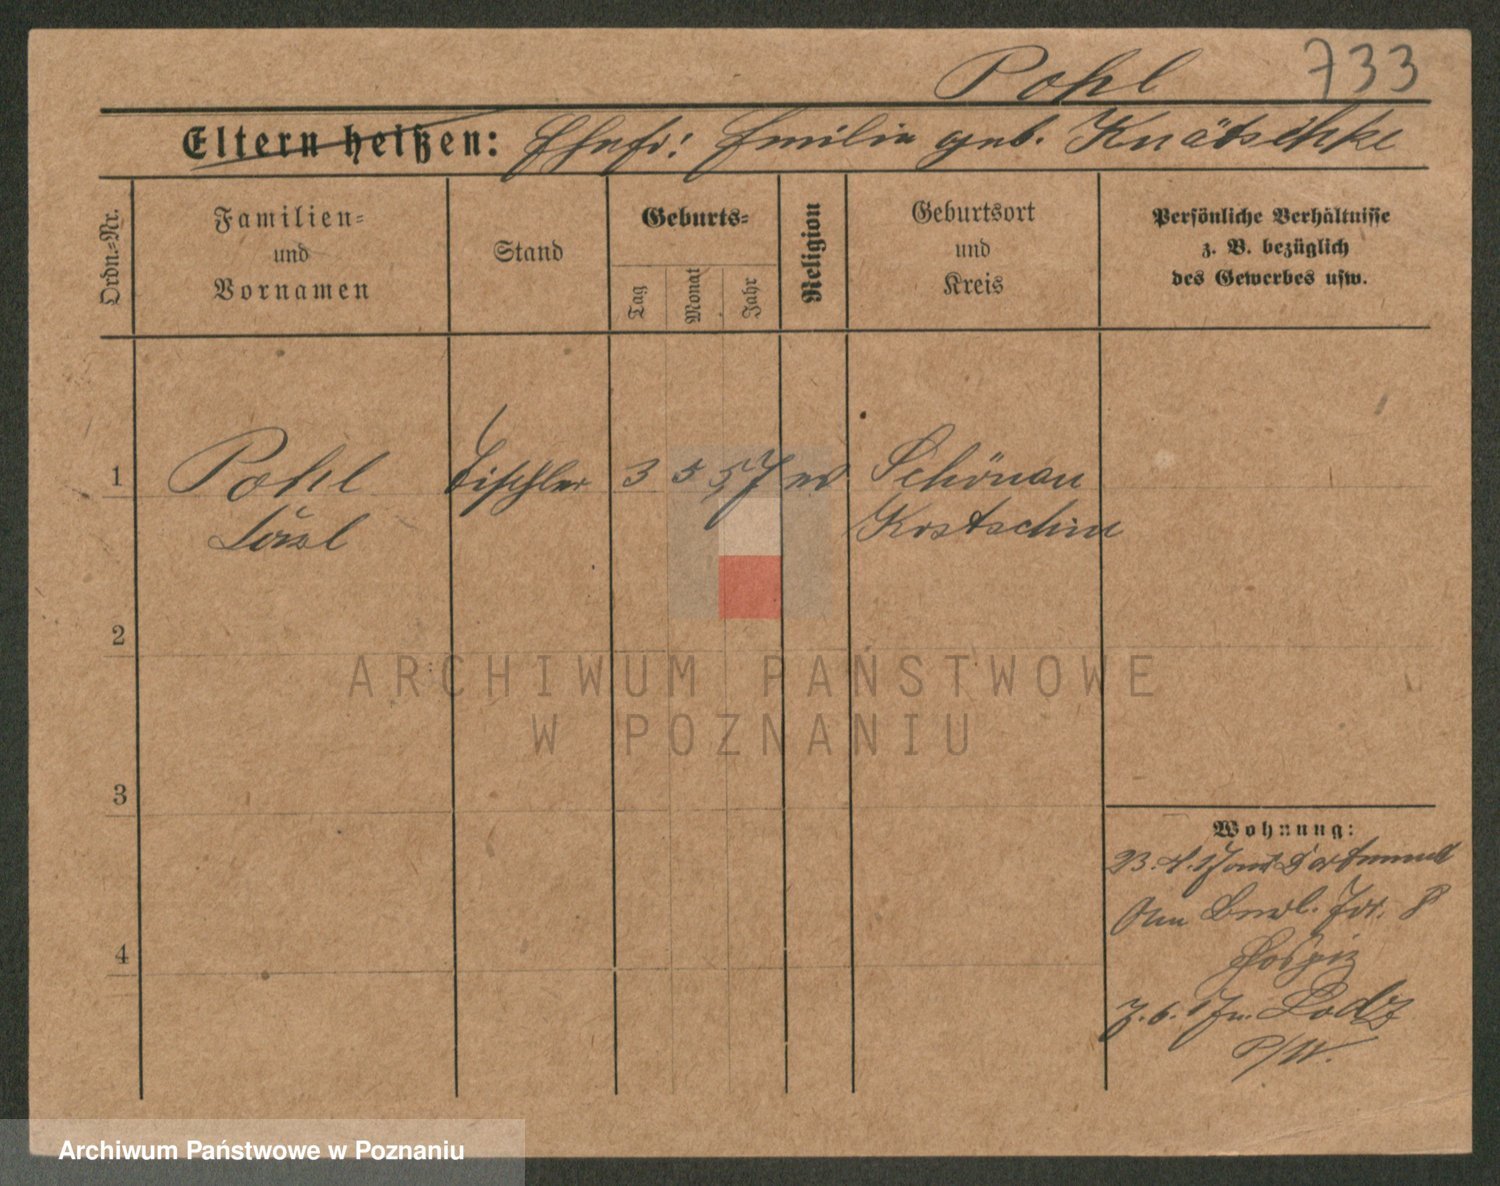 Pohl 733
Eltern heißen: Ehefr: Emilie geb. Knätschke
Ordn.=Nr.
Familien=
und
Vornamen
Stand
Geburts=
Tag
Monat
Jahr
Religion
Geburtsort
und
Kreis
Persönliche Verhältnisse
z. B. bezüglich
des Gewerbes usw.
1 Pohl Tischler 3 5 57 ev Schönau
Krotschin
2
3
4
Wohnung:
Dortmund
8
Hospiz
Lodz
P/W.
ARCHIWUM PAŃSTWOWE
W POZNANIU
Archiwum Państwowe w Poznaniu